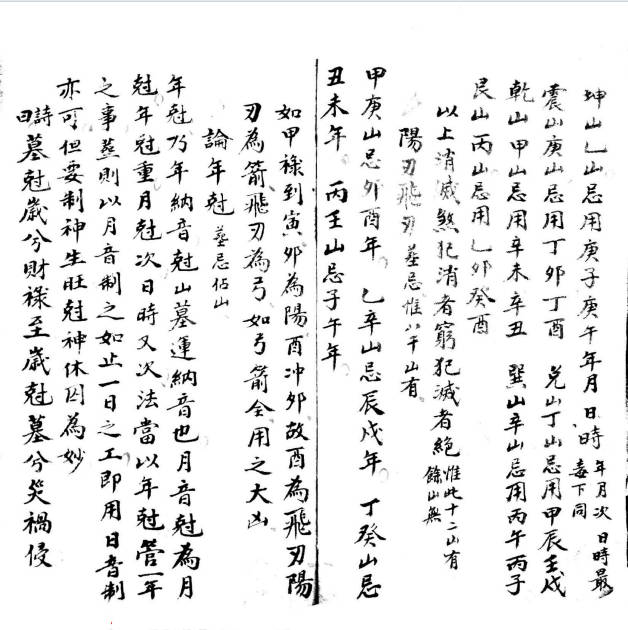 坤山乙山忌用庚子庚午年月日時 年月次日時最毒下同
震山庚山忌用丁卯丁酉 兌山丁山忌用甲辰壬戌
乾山甲山忌用辛未辛丑 巽山辛山忌用丙午丙子
艮山丙山忌用乙卯癸酉
以上消滅煞犯消者窮犯滅者絕 惟此十二山有餘山無
陽刃飛刃 葬忌惟八干山有
甲庚山忌卯酉年 乙辛山忌辰戌年 丁癸山忌
丑未年 丙壬山忌子午年
如甲祿到寅卯為陽酉冲卯故酉為飛刃陽
刃為箭飛刃為弓如弓箭全用之大凶
論年尅 葬忌佔山
年尅乃年納音尅山墓運納音也月音尅為月
尅年尅重月尅次日時又次法當以年尅管一年
之事葬則以月音制之如止一日之工即用日音制
亦可但要制神生旺尅神休囚為妙
詩曰墓尅歲兮財祿至歲尅墓兮災禍侵